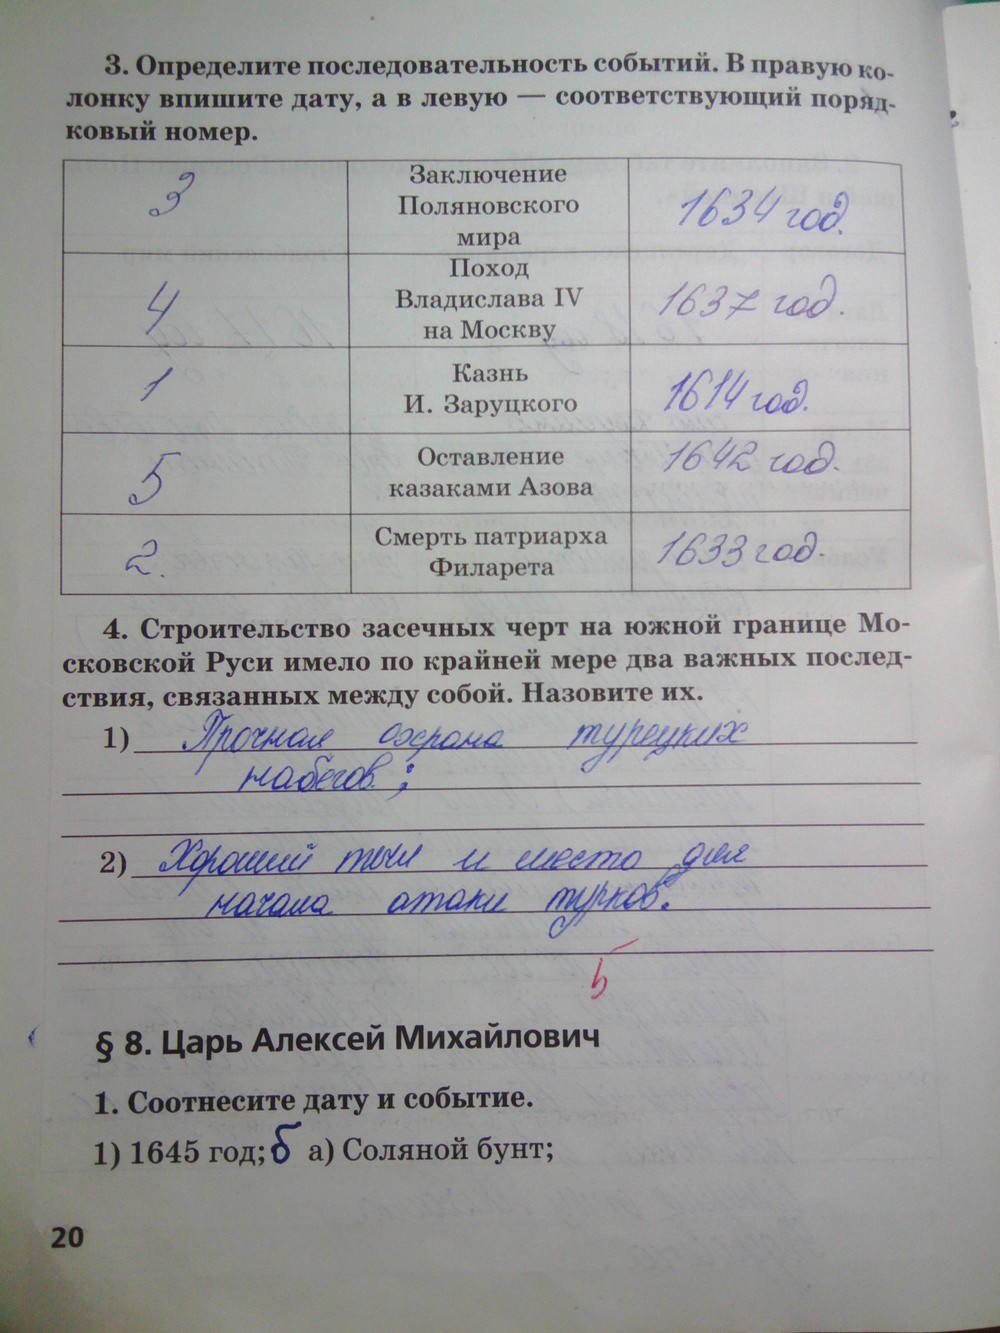 3. Определите последовательность событий. В правую ко-
лонку впишите дату, а в левую — соответствующий поряд-
ковый номер.
3
Заключение
Поляновского
мира
1634 год.
4
Поход
Владислава IV
на Москву
1637 год.
1
Казнь
И. Заруцкого
1614 год.
5
Оставление
казаками Азова
1642 год.
2.
Смерть патриарха
Филарета
1633 год.
4. Строительство засечных черт на южной границе Мо-
сковской Руси имело по крайней мере два важных послед-
ствия, связанных между собой. Назовите их.
1) Прочная охрана турецких
набегов;
2) Хороший тыл и место для
начала атаки турков.
5
§ 8. Царь Алексей Михайлович
1. Соотнесите дату и событие.
1) 1645 год; б а) Соляной бунт;
20